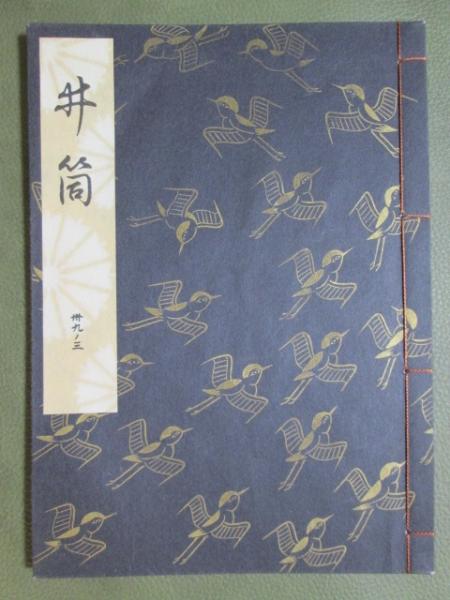 井筒
卅九ノ三